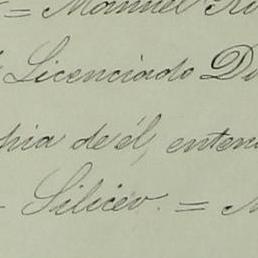 = Manuel
Licenciado
phia de él, enten
Silicév. =